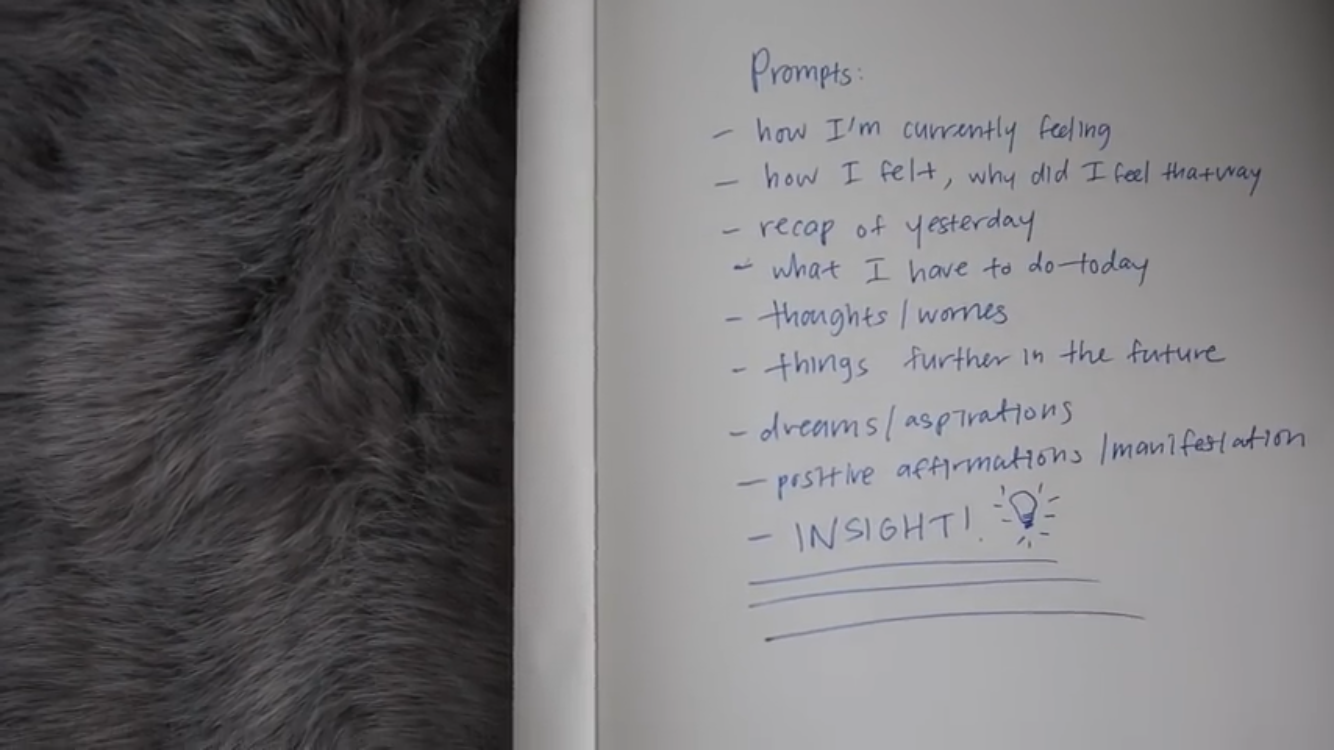 Prompts:
- how I'm currently feeling
- how I felt, why did I feel that way
- recap of yesterday
- what I have to do today
- thoughts/worries
- things further in the future
- dreams/aspirations
- positive affirmations/manifestation
- INSIGHT!